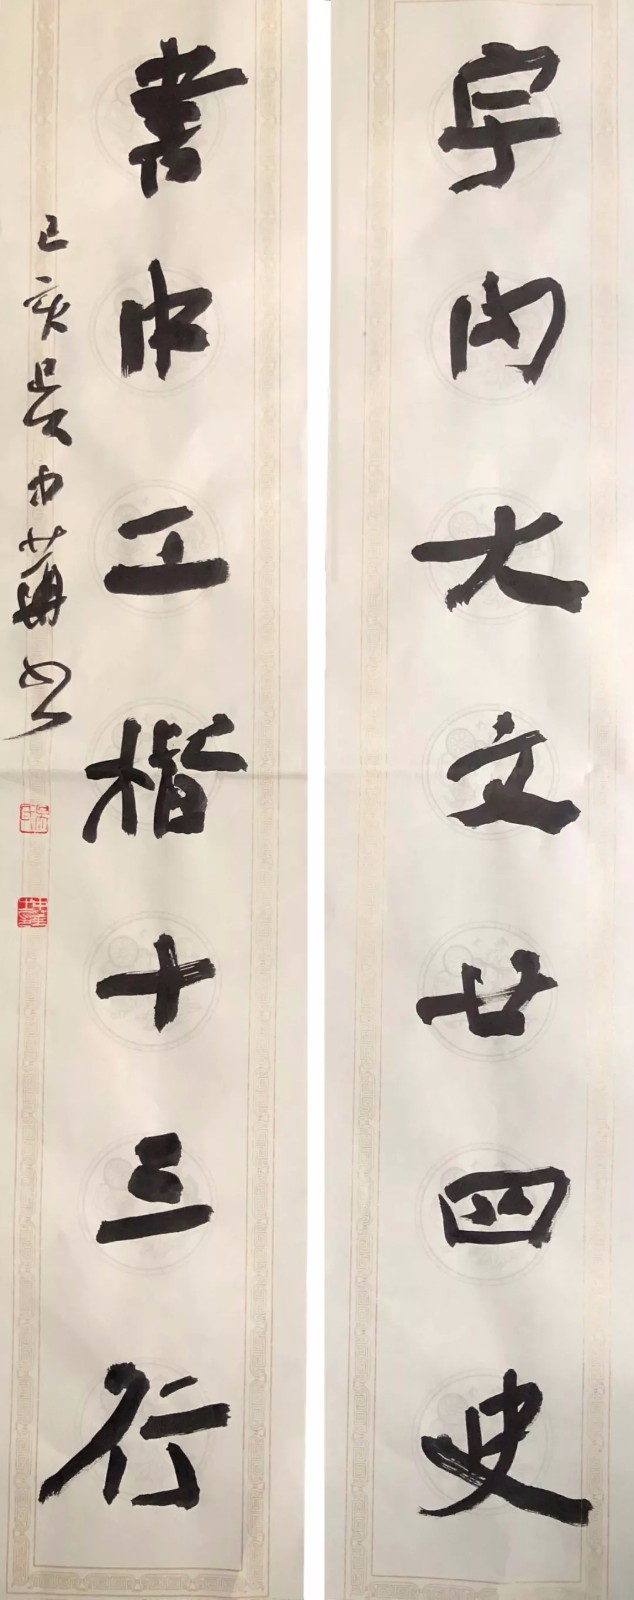 宇内大文廿四史
書中工楷十三行
己亥吴中華书